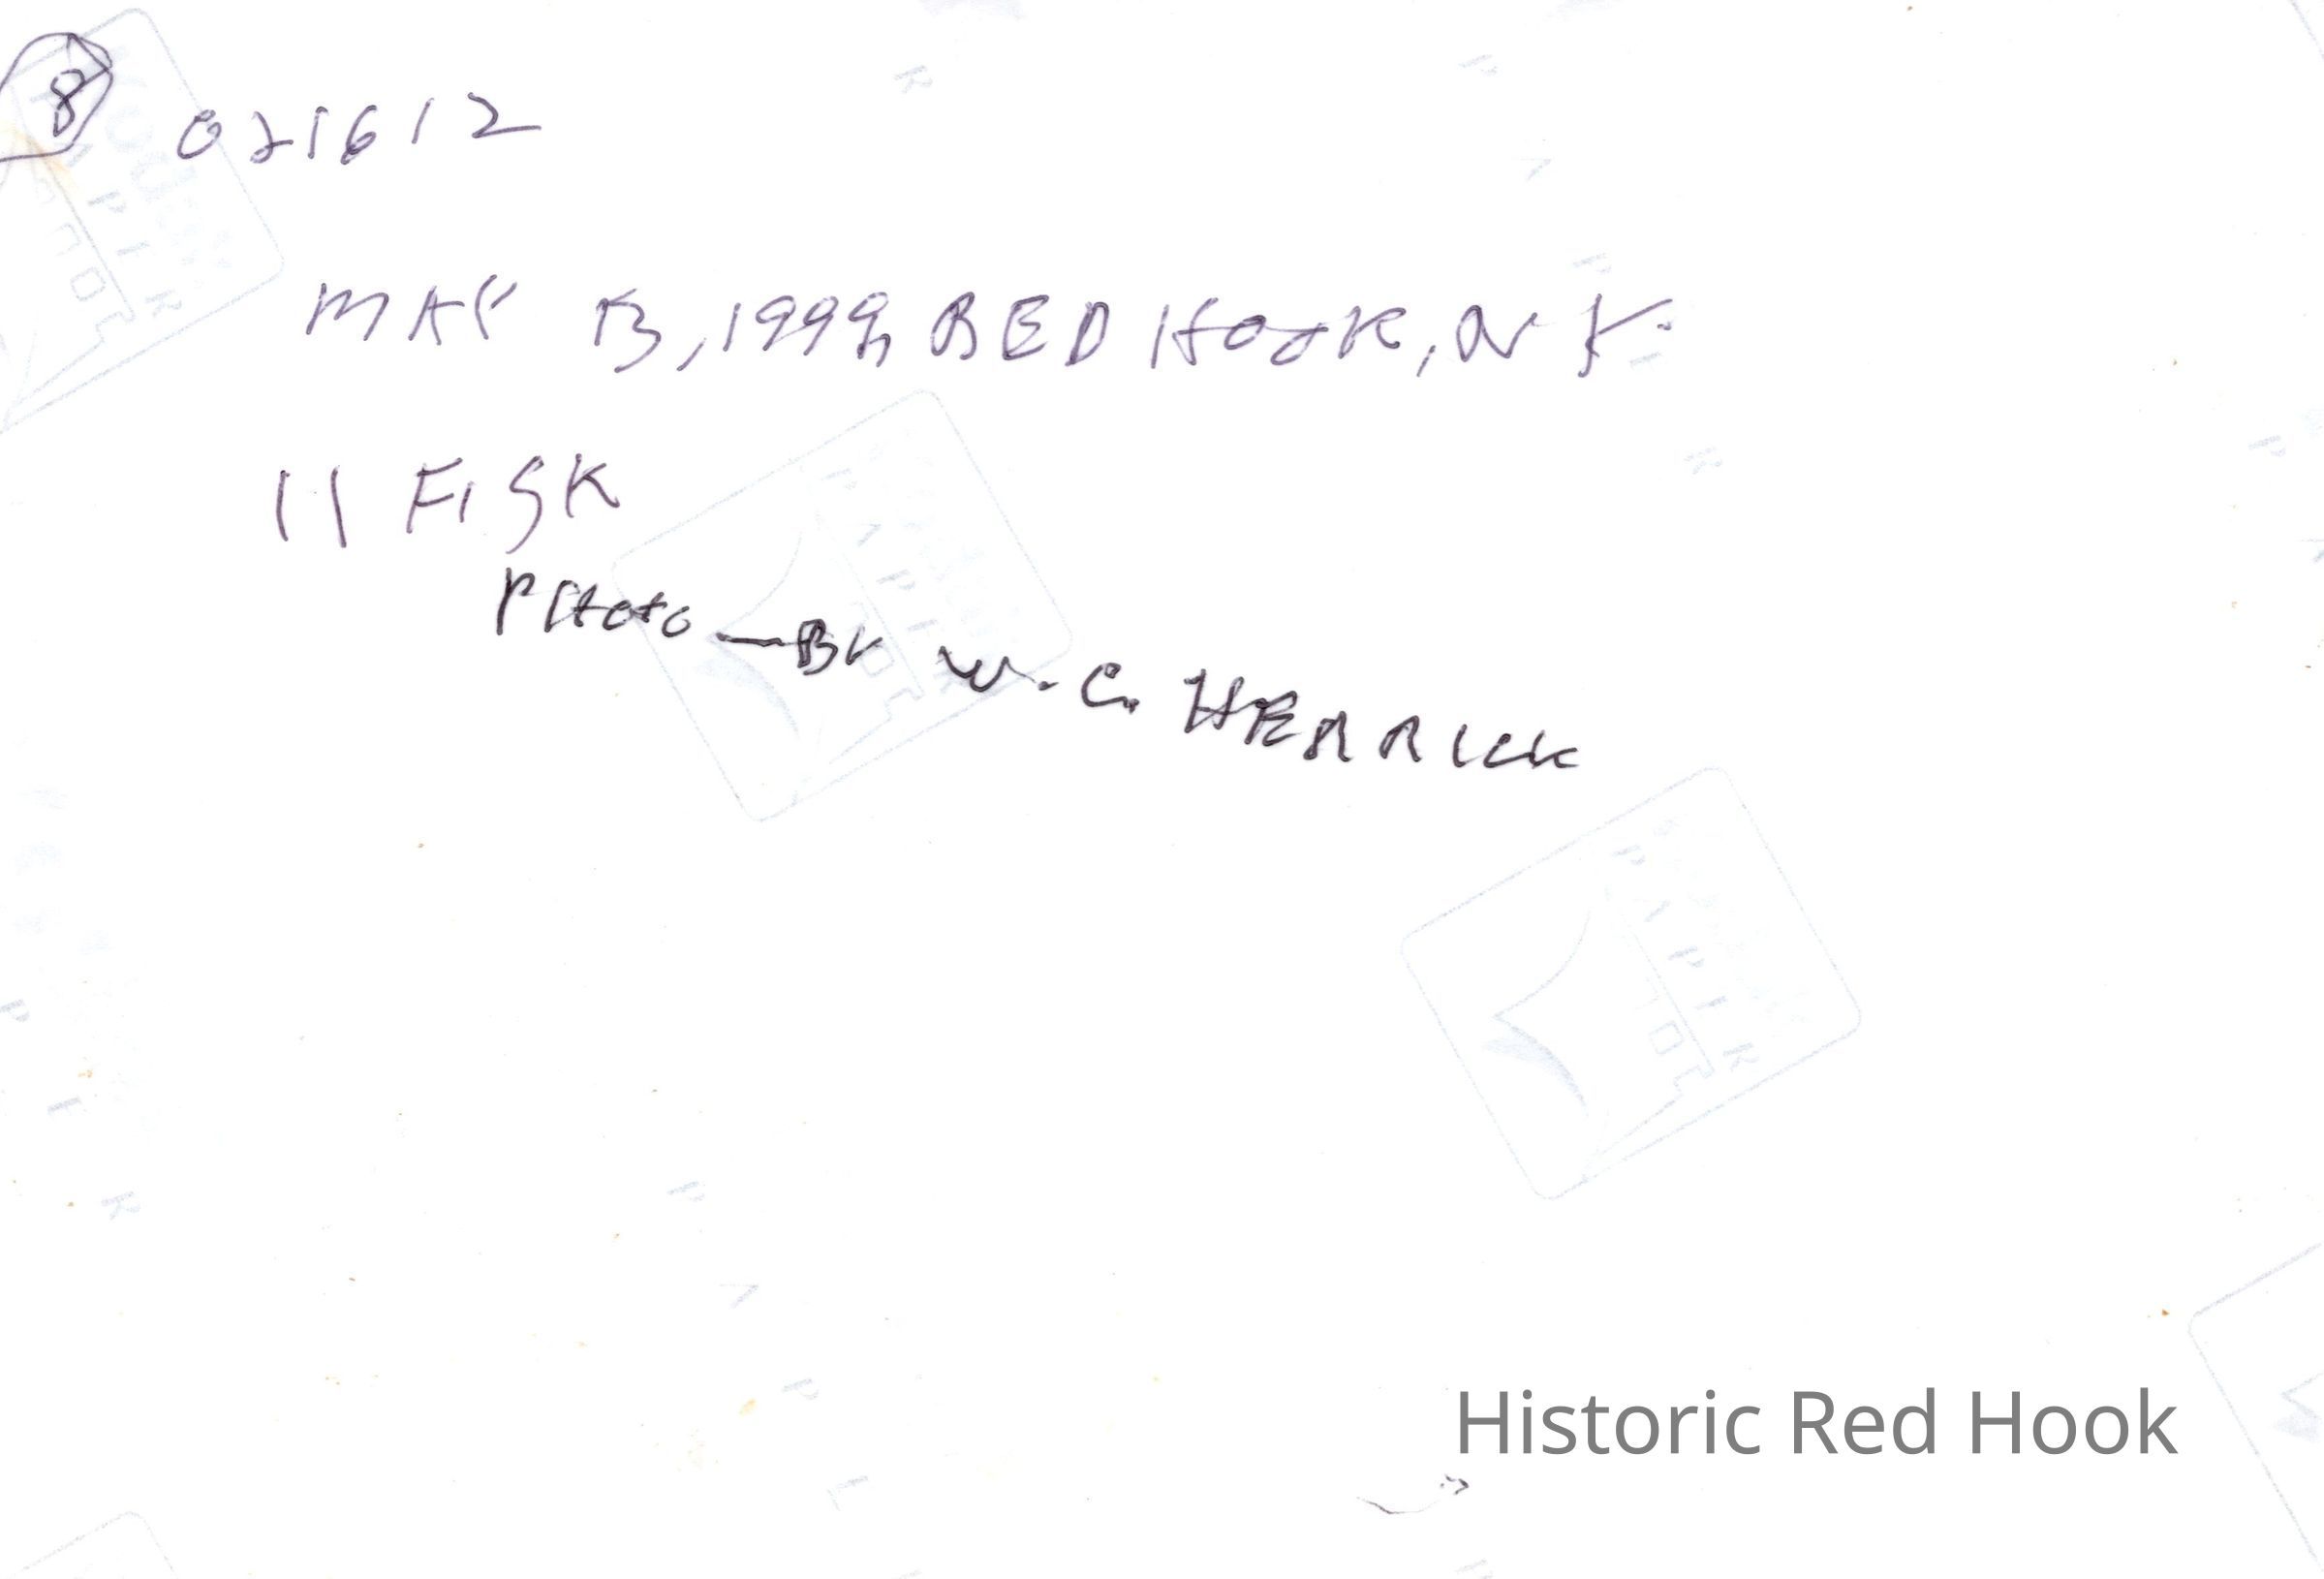 8
021612
MAY 13, 1999, RED HOOK, N Y.
11 FISK
PHOTO — BY W. C. HERRICK
Historic Red Hook